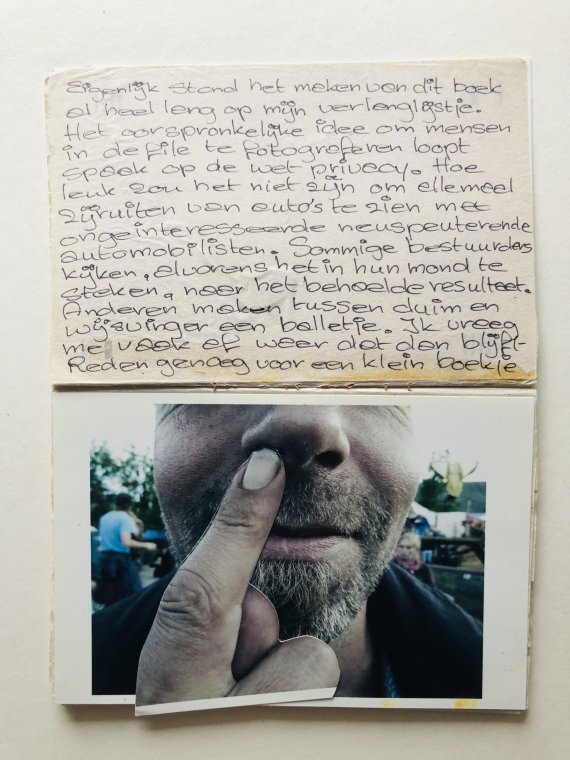 Eigenlijk stond het maken van dit boek
al heel lang op mijn verlanglijstje.
Het oorspronkelijke idee om mensen
in de file te fotograferen loopt
spaak op de wet privacy. Hoe
leuk zou het niet zijn om allemaal
zijruiten van auto's te zien met
ongeinteresseerde neuspeuterende
automobilisten. Sommige bestuurders
kijken, alvorens het in hun mond te
steken, naar het behaalde resultaat.
Anderen maken tussen duim en
wijsvinger een balletje. Ik vraag
me vaak af waar dat dan blijft-
Reden genoeg voor een klein boekje